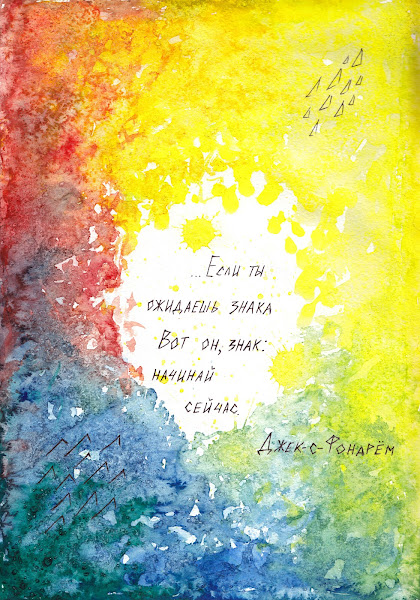 ...Если ты
ожидаешь знака
Вот он, знак:
начинай
сейчас.
Джек-с-Фонарём